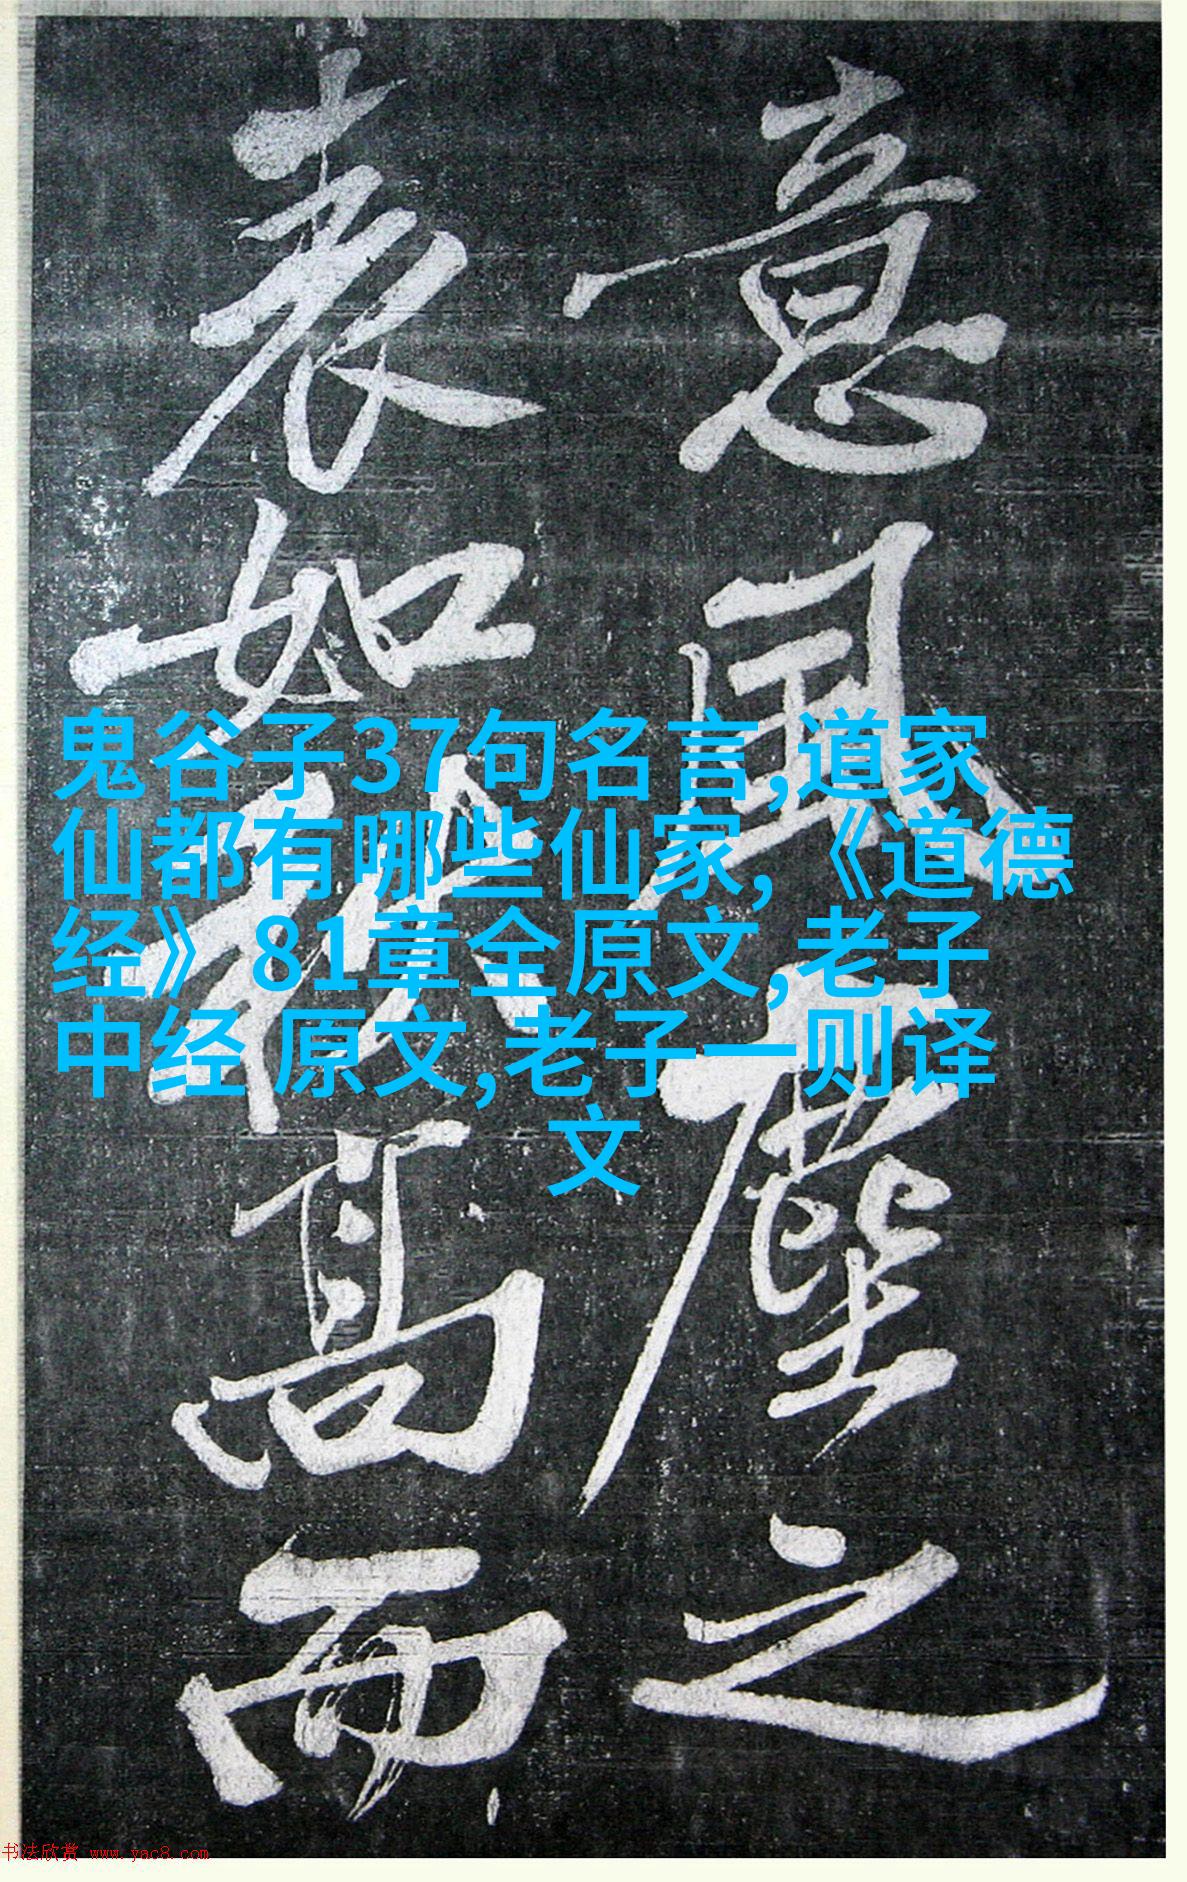 意風塵之
表如秋高而
鬼谷子37句名言,道家
仙都有哪些仙家,《道德
经》81章全原文,老子
中经 原文,老子一则译
文
书法欣赏 www.yac8.com